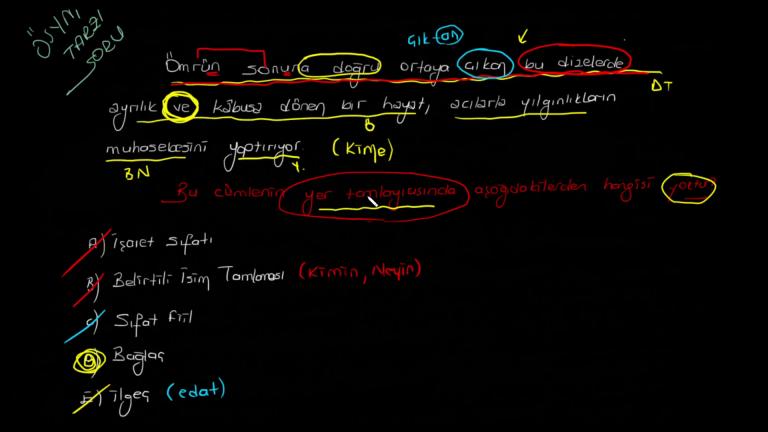 ÖSYM
TARZI
SORU
çıktan
Ömrün sonuna doğru ortaya çıkan bu dizelerde
DT
ayrılık ve kâbusa dönen bir hayat, acılarla yılgınlıkların
Ö
muhasebesini yaptırıyor. (Kime)
BN Y.
Bu cümlenin yer tamlayıcısında aşağıdakilerden hangisi yoktur
A) İşaret sıfatı
B) Belirtili İsim Tamlaması (Kimin, Neyin)
C) Sıfat fiil
D) Bağlaç
E) İlgeç (edat)